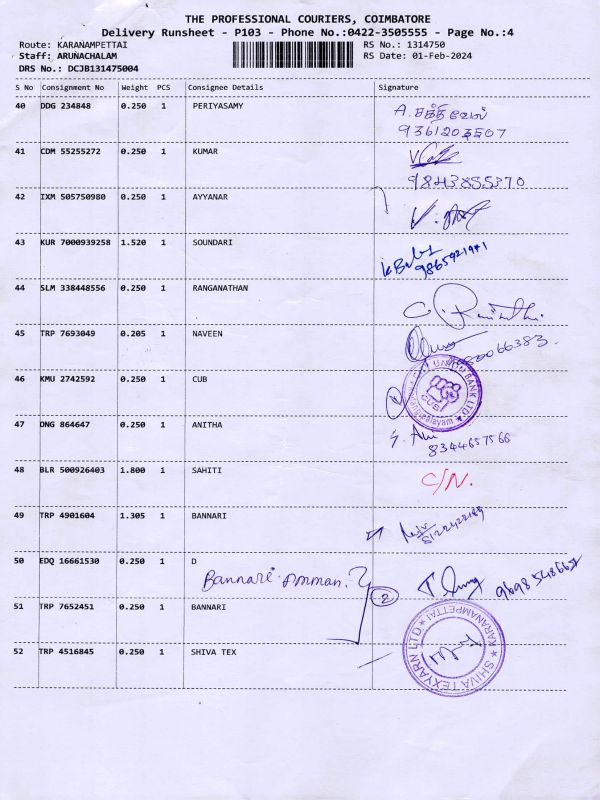 THE PROFESSIONAL COURIERS, COIMBATORE
Delivery Runsheet - P103 - Phone No.:0422-3505555 - Page No.:4
Route: KARANAMPETTAI RS No.: 1314750
Staff: ARUNACHALAM RS Date: 01-Feb-2024
DRS No.: DCJB131475004
S No Consignment No Weight PCS Consignee Details Signature
40 DDG 234848 0.250 1 PERIYASAMY
A. சக்திவேல்
9361203507
41 CDM 55255272 0.250 1 KUMAR
9843855370
42 IXM 505750980 0.250 1 AYYANAR
43 KUR 7000939258 1.520 1 SOUNDARI
9865921941
44 SLM 338448556 0.250 1 RANGANATHAN
45 TRP 7693049 0.205 1 NAVEEN
46 KMU 2742592 0.250 1 CUB
UNION BANK LTD.
CUB
47 ONG 864647 0.250 1 ANITHA
8344657566
48 BLR 500926403 1.800 1 SAHITI
C/N.
49 TRP 4901604 1.305 1 BANNARI
50 EDQ 16661530 0.250 1 D
Bannari Amman.
2
51 TRP 7652451 0.250 1 BANNARI
52 TRP 4516845 0.250 1 SHIVA TEX
SHIVA TEXYARN LTD ★ KARANAMPETTAI ★